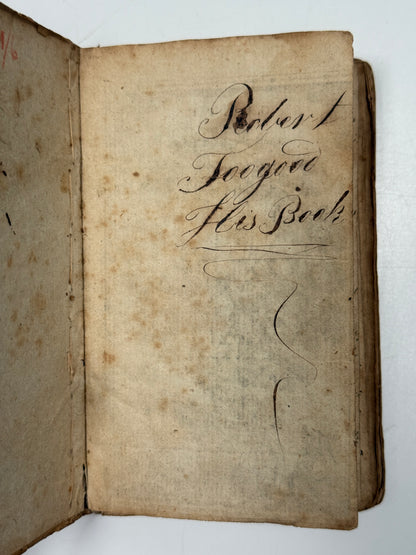 Robert
Toogood
His Book